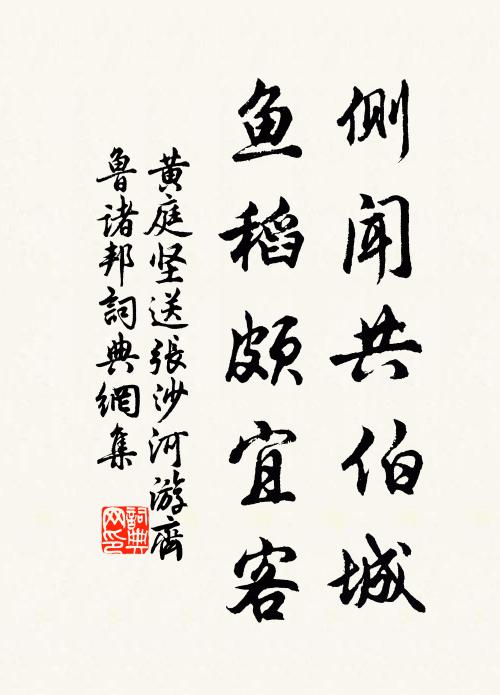 侧闻共伯城
鱼稻颇宜客
黄庭坚送張沙河游齊
鲁诸邦詞典網集
詞典网印